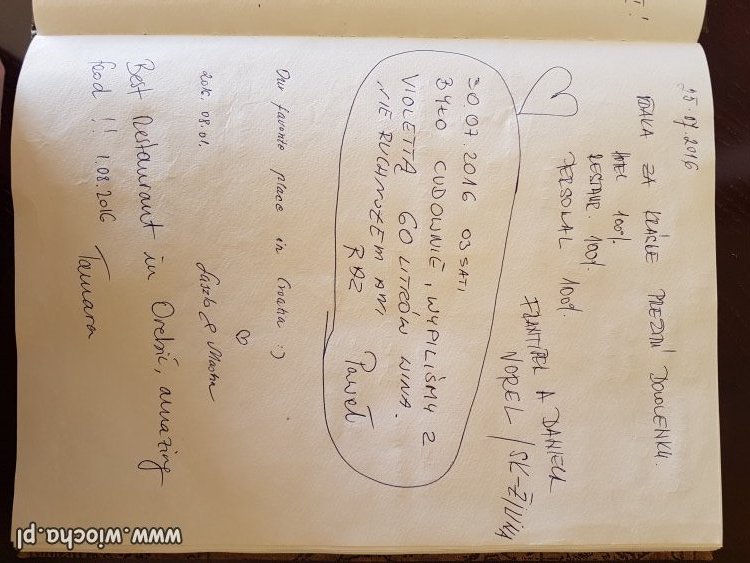 25.07.2016
VĎAKA ZA KRÁSNE PREŽITÚ DOVOLENKU.
HOTEL 100%
RESTAUR. 100%
PERSONAL 100%
FRANTIŠEK A DANIELA
NOREL / SK-ŽILINA
30 07.2016 03 SATI
BYŁO CUDOWNIE, WYPILIŚMY Z
VIOLETTĄ 60 LITRÓW WINA.
NIE RUCHAŁEM ANI
RAZ Paweł
Our favorite place in Croatia :)
2016. 08.01.
Laszlo &
Best restaurant in Orebić, amazing
food !! 1.08.2016 Tamara
www.wiocha.pl